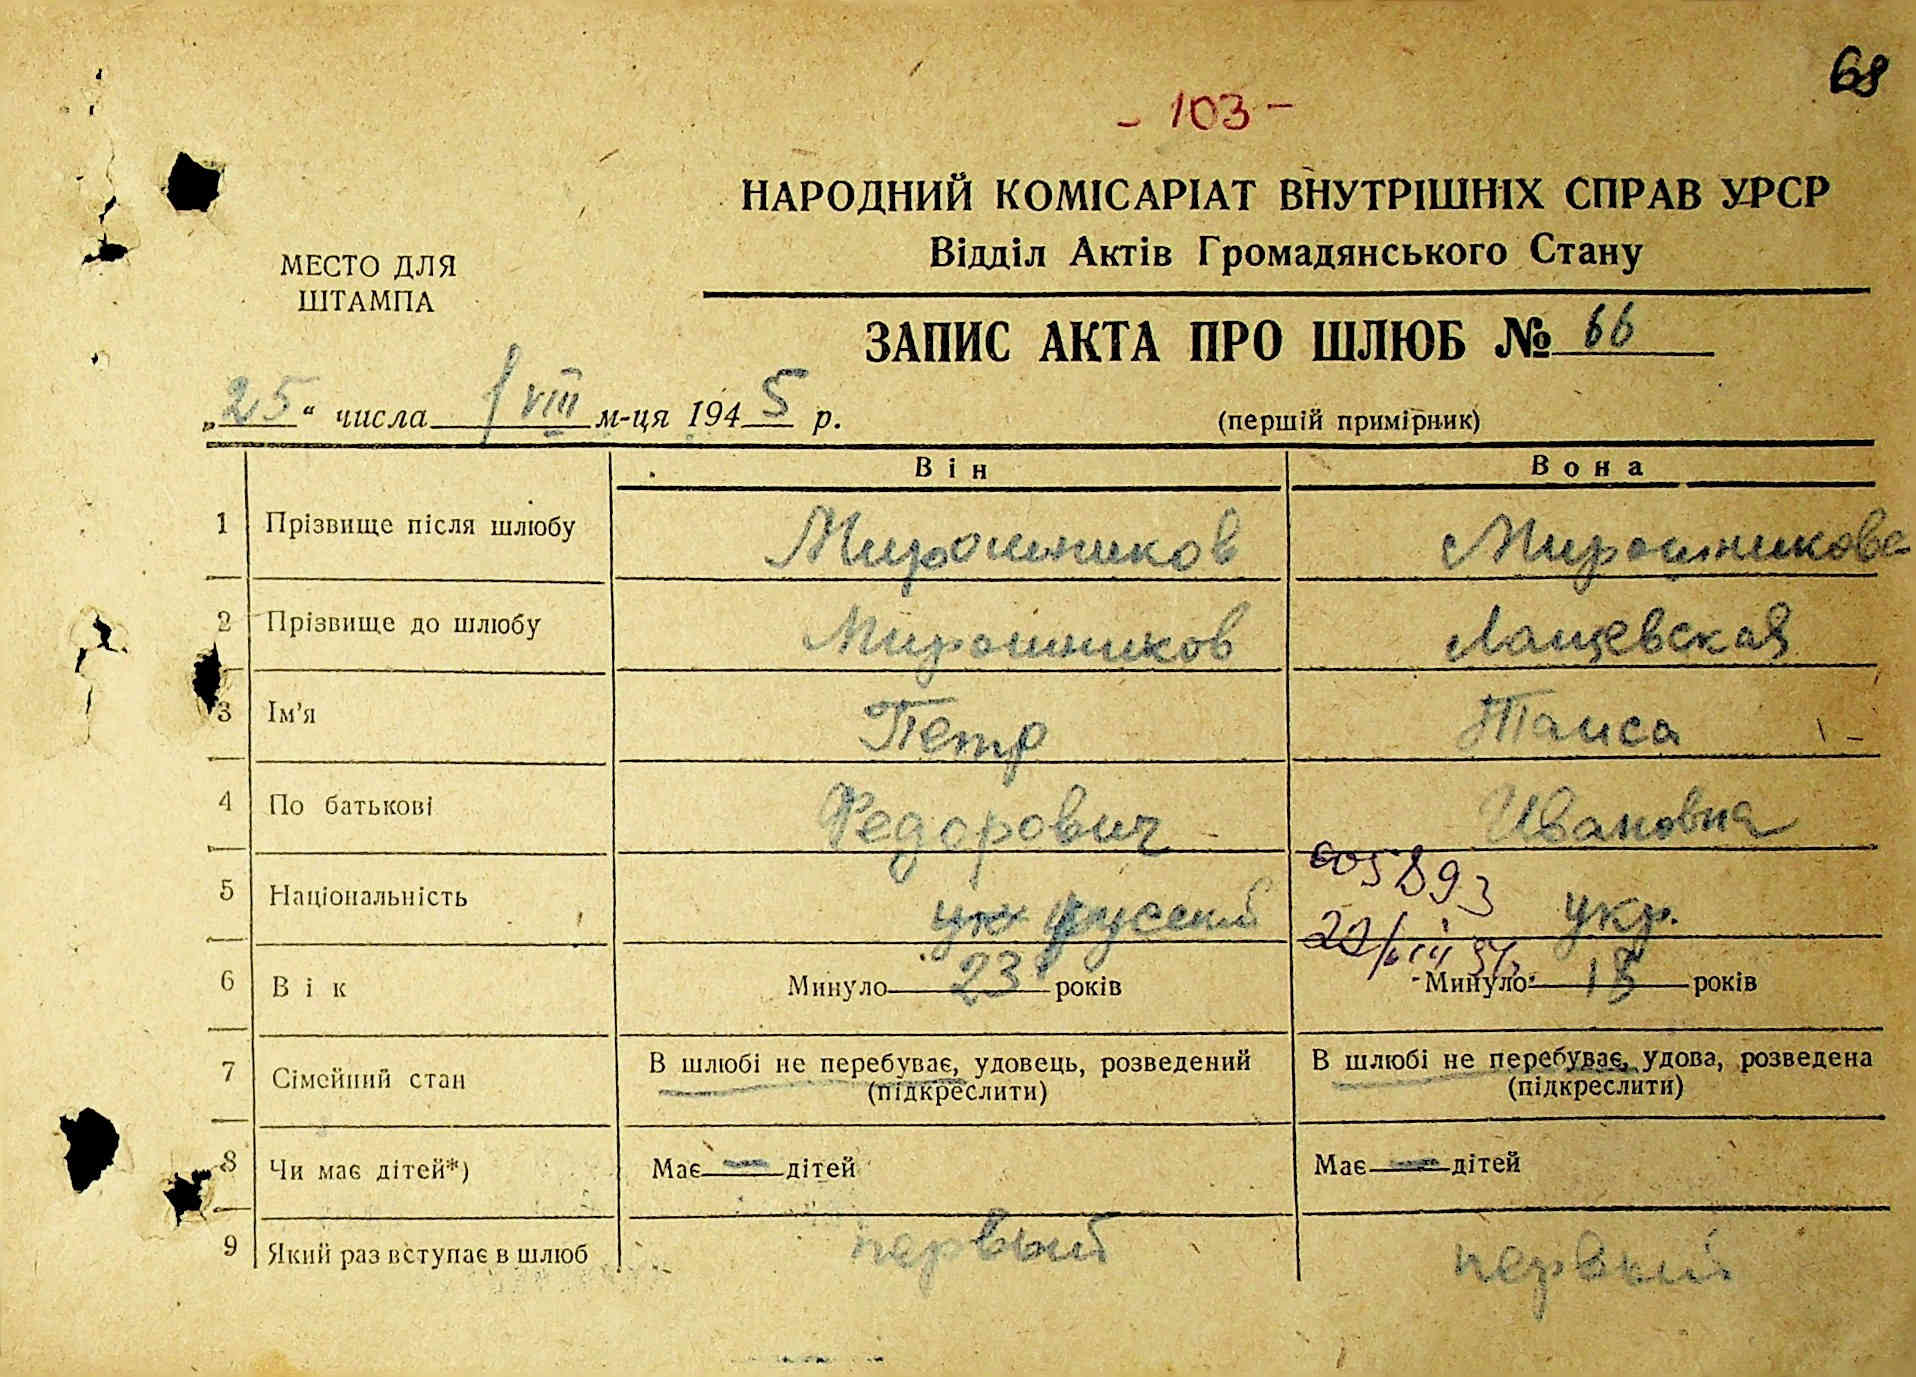 68
- 103 -
НАРОДНИЙ КОМІСАРІАТ ВНУТРІШНІХ СПРАВ УРСР
Відділ Актів Громадянського Стану
МЕСТО ДЛЯ
ШТАМПА
ЗАПИС АКТА ПРО ШЛЮБ № 66
„25“ числа VIII м-ця 1945 р.
(перший примірник)
Він Вона
1 Прізвище після шлюбу Мирошников Мирошникова
2 Прізвище до шлюбу Мирошников Лащевская
3 Ім'я Петр Таиса
4 По батькові Федорович Ивановна
5 Національність русский укр.
6 Вік Минуло 23 років Минуло 18 років
7 Сімейний стан В шлюбі не перебуває, удовець, розведений В шлюбі не перебуває, удова, розведена
(підкреслити) (підкреслити)
8 Чи має дітей*) Має — дітей Має — дітей
9 Який раз вступає в шлюб первый первый